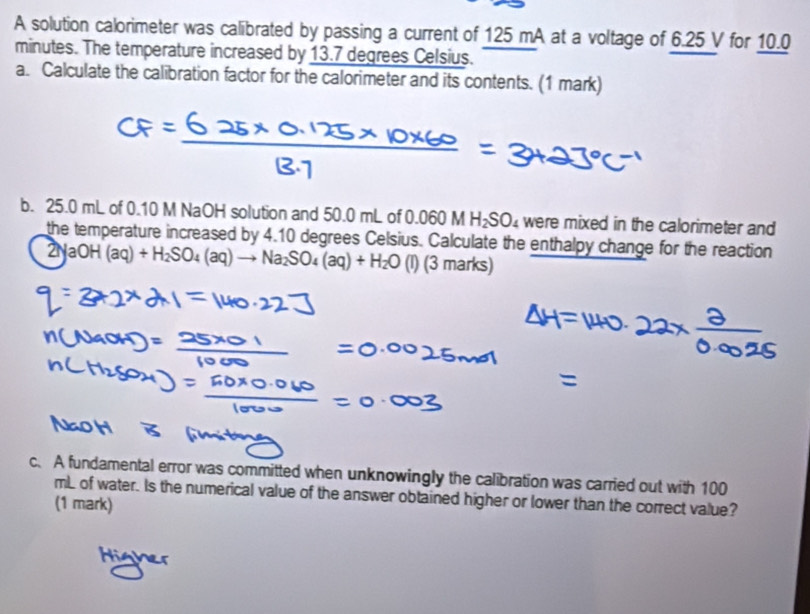 A solution calorimeter was calibrated by passing a current of 125 mA at a voltage of 6.25 V for 10.0
minutes. The temperature increased by 13.7 degrees Celsius.
a. Calculate the calibration factor for the calorimeter and its contents. (1 mark)
CF = 6 25 × 0.125 × 10×60 / 13.7 = 34.2 J°C⁻¹
b. 25.0 mL of 0.10 M NaOH solution and 50.0 mL of 0.060 M H₂SO₄ were mixed in the calorimeter and
the temperature increased by 4.10 degrees Celsius. Calculate the enthalpy change for the reaction
2NaOH (aq) + H₂SO₄ (aq) → Na₂SO₄ (aq) + H₂O (l) (3 marks)
q = = 140.22J
ΔH = 140.22 × 2 / 0.0025
n(NaOH) = 25×0 1 / 1000 = 0.0025mol
=
n(H₂SO₄) = 50×0.060 / 1000 = 0.003
NaOH is limiting
c. A fundamental error was committed when unknowingly the calibration was carried out with 100
mL of water. Is the numerical value of the answer obtained higher or lower than the correct value?
(1 mark)
Higher